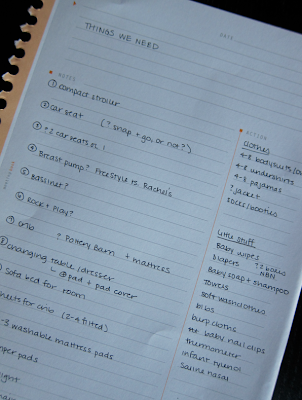 DATE
THINGS WE NEED
NOTES
① compact stroller
② car seat (? snap + go, or not?)
③ ? 2 car seats vs. 1
④ Breast pump? Freestyle vs. Rachel's
⑤ Bassinet?
⑥ Rock + Play?
⑦ Crib ? Pottery Barn + mattress
⑧ changing table/dresser
↳ @ pad + pad cover
Sofa bed for room
sheets for crib (2-4 fitted)
-3 washable mattress pads
pads
light
ACTION
clothes
4-8 bodysuits
4-8 undershirts
4-8 pajamas
? jacket
socks/booties
Little stuff
Baby wipes
Diapers ? 2 boxes NBN
Baby soap + shampoo
Towels
soft washcloths
bibs
burp cloths
baby nail clips
thermometer
infant tylenol
Saline nasal